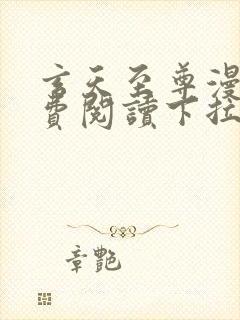 玄天至尊漫
費閱讀下拉
章艷